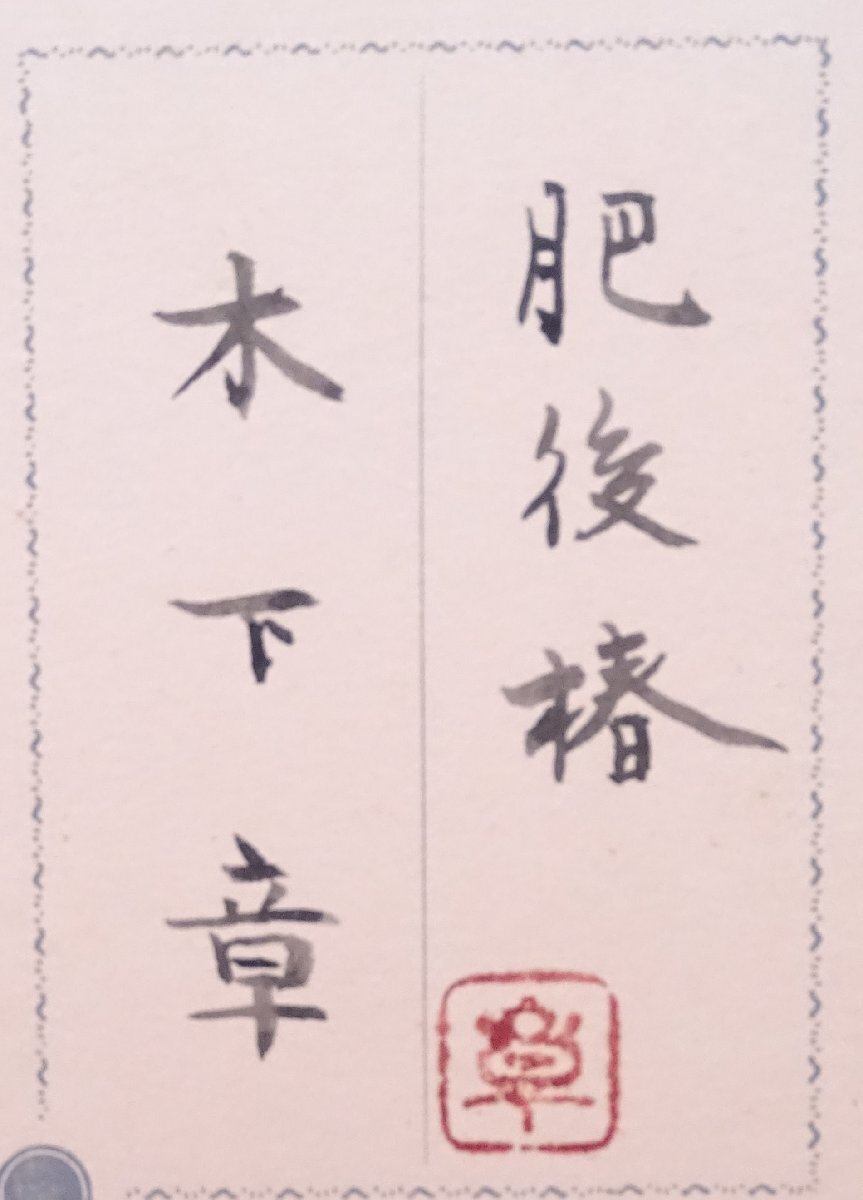 肥後椿
木下章
章